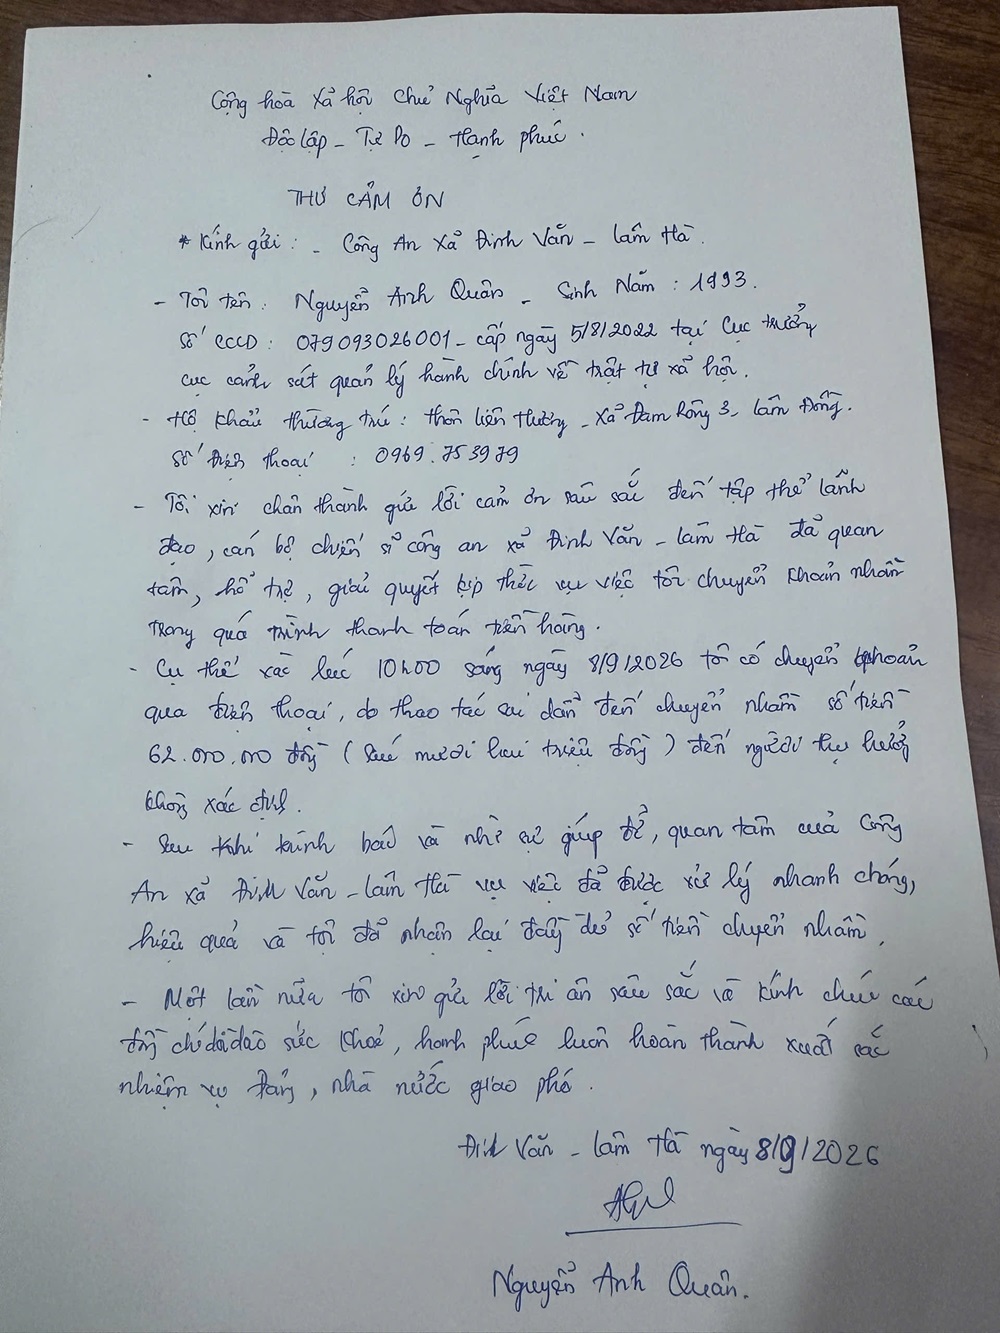 Cộng hòa Xả hội Chủ Nghĩa Việt Nam
Độc lập - Tự Do - Hạnh phúc.
THƯ CẢM ƠN
* Kính gửi: - Công An Xả Đinh Văn - Lâm Hà.
- Tôi tên: Nguyễn Anh Quân - Sinh Năm: 1993.
Số CCCD: 079093026001 - cấp ngày 5/8/2022 tại Cục trưởng
cục cảnh sát quản lý hành chính về trật tự xả hội.
- Hộ khẩu thường trú: thôn liên Hương - Xả Đam Rông 3 - Lâm Đồng.
Số điện thoại : 0969.753979
- Tôi xin chân thành gửi lời cảm ơn sâu sắc đến tập thể lảnh
đạo, cán bộ chiến sĩ công an xả Đinh Văn - Lâm Hà đả quan
tâm, hổ trợ, giải quyết kịp thời vụ việc tôi chuyển khoản nhầm
trong quá trình thanh toán tiền hàng.
- Cụ thể vào lúc 10h00 sáng ngày 8/9/2026 tôi có chuyển khoản
qua điện thoại, do thao tác sai dẫn đến chuyển nhầm số tiền
62.000.000 đồng (Sáu mươi hai triệu đồng) đến người thụ hưởng
không xác định.
- Sau khi trình báo và nhờ sự giúp đở, quan tâm của Công
An xả Đinh Văn - Lâm Hà vụ việc đả được xử lý nhanh chóng,
hiệu quả và tôi đả nhận lại đầy đủ số tiền chuyển nhầm.
- Một lần nửa tôi xin gửi lời tri ân sâu sắc và kính chúc các
đồng chí dồi dào sức khoẻ, hạnh phúc luôn hoàn thành xuất sắc
nhiệm vụ Đảng, nhà nước giao phó.
Đinh Văn - Lâm Hà ngày 8/9/2026
Nguyễn Anh Quân.